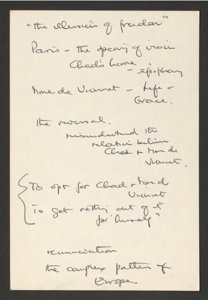 "the illusion of freedom"
Paris - the opening of vision
Chad's home - epiphany
Mme de Vionnet - Life &
Grace.
the reversal.
misunderstood the
relation between
Chad & Mme de
Vionnet.
To opt for Chad & Mme de
Vionnet
To get nothing out of it
for himself
renunciation
the complex pattern of
Europe